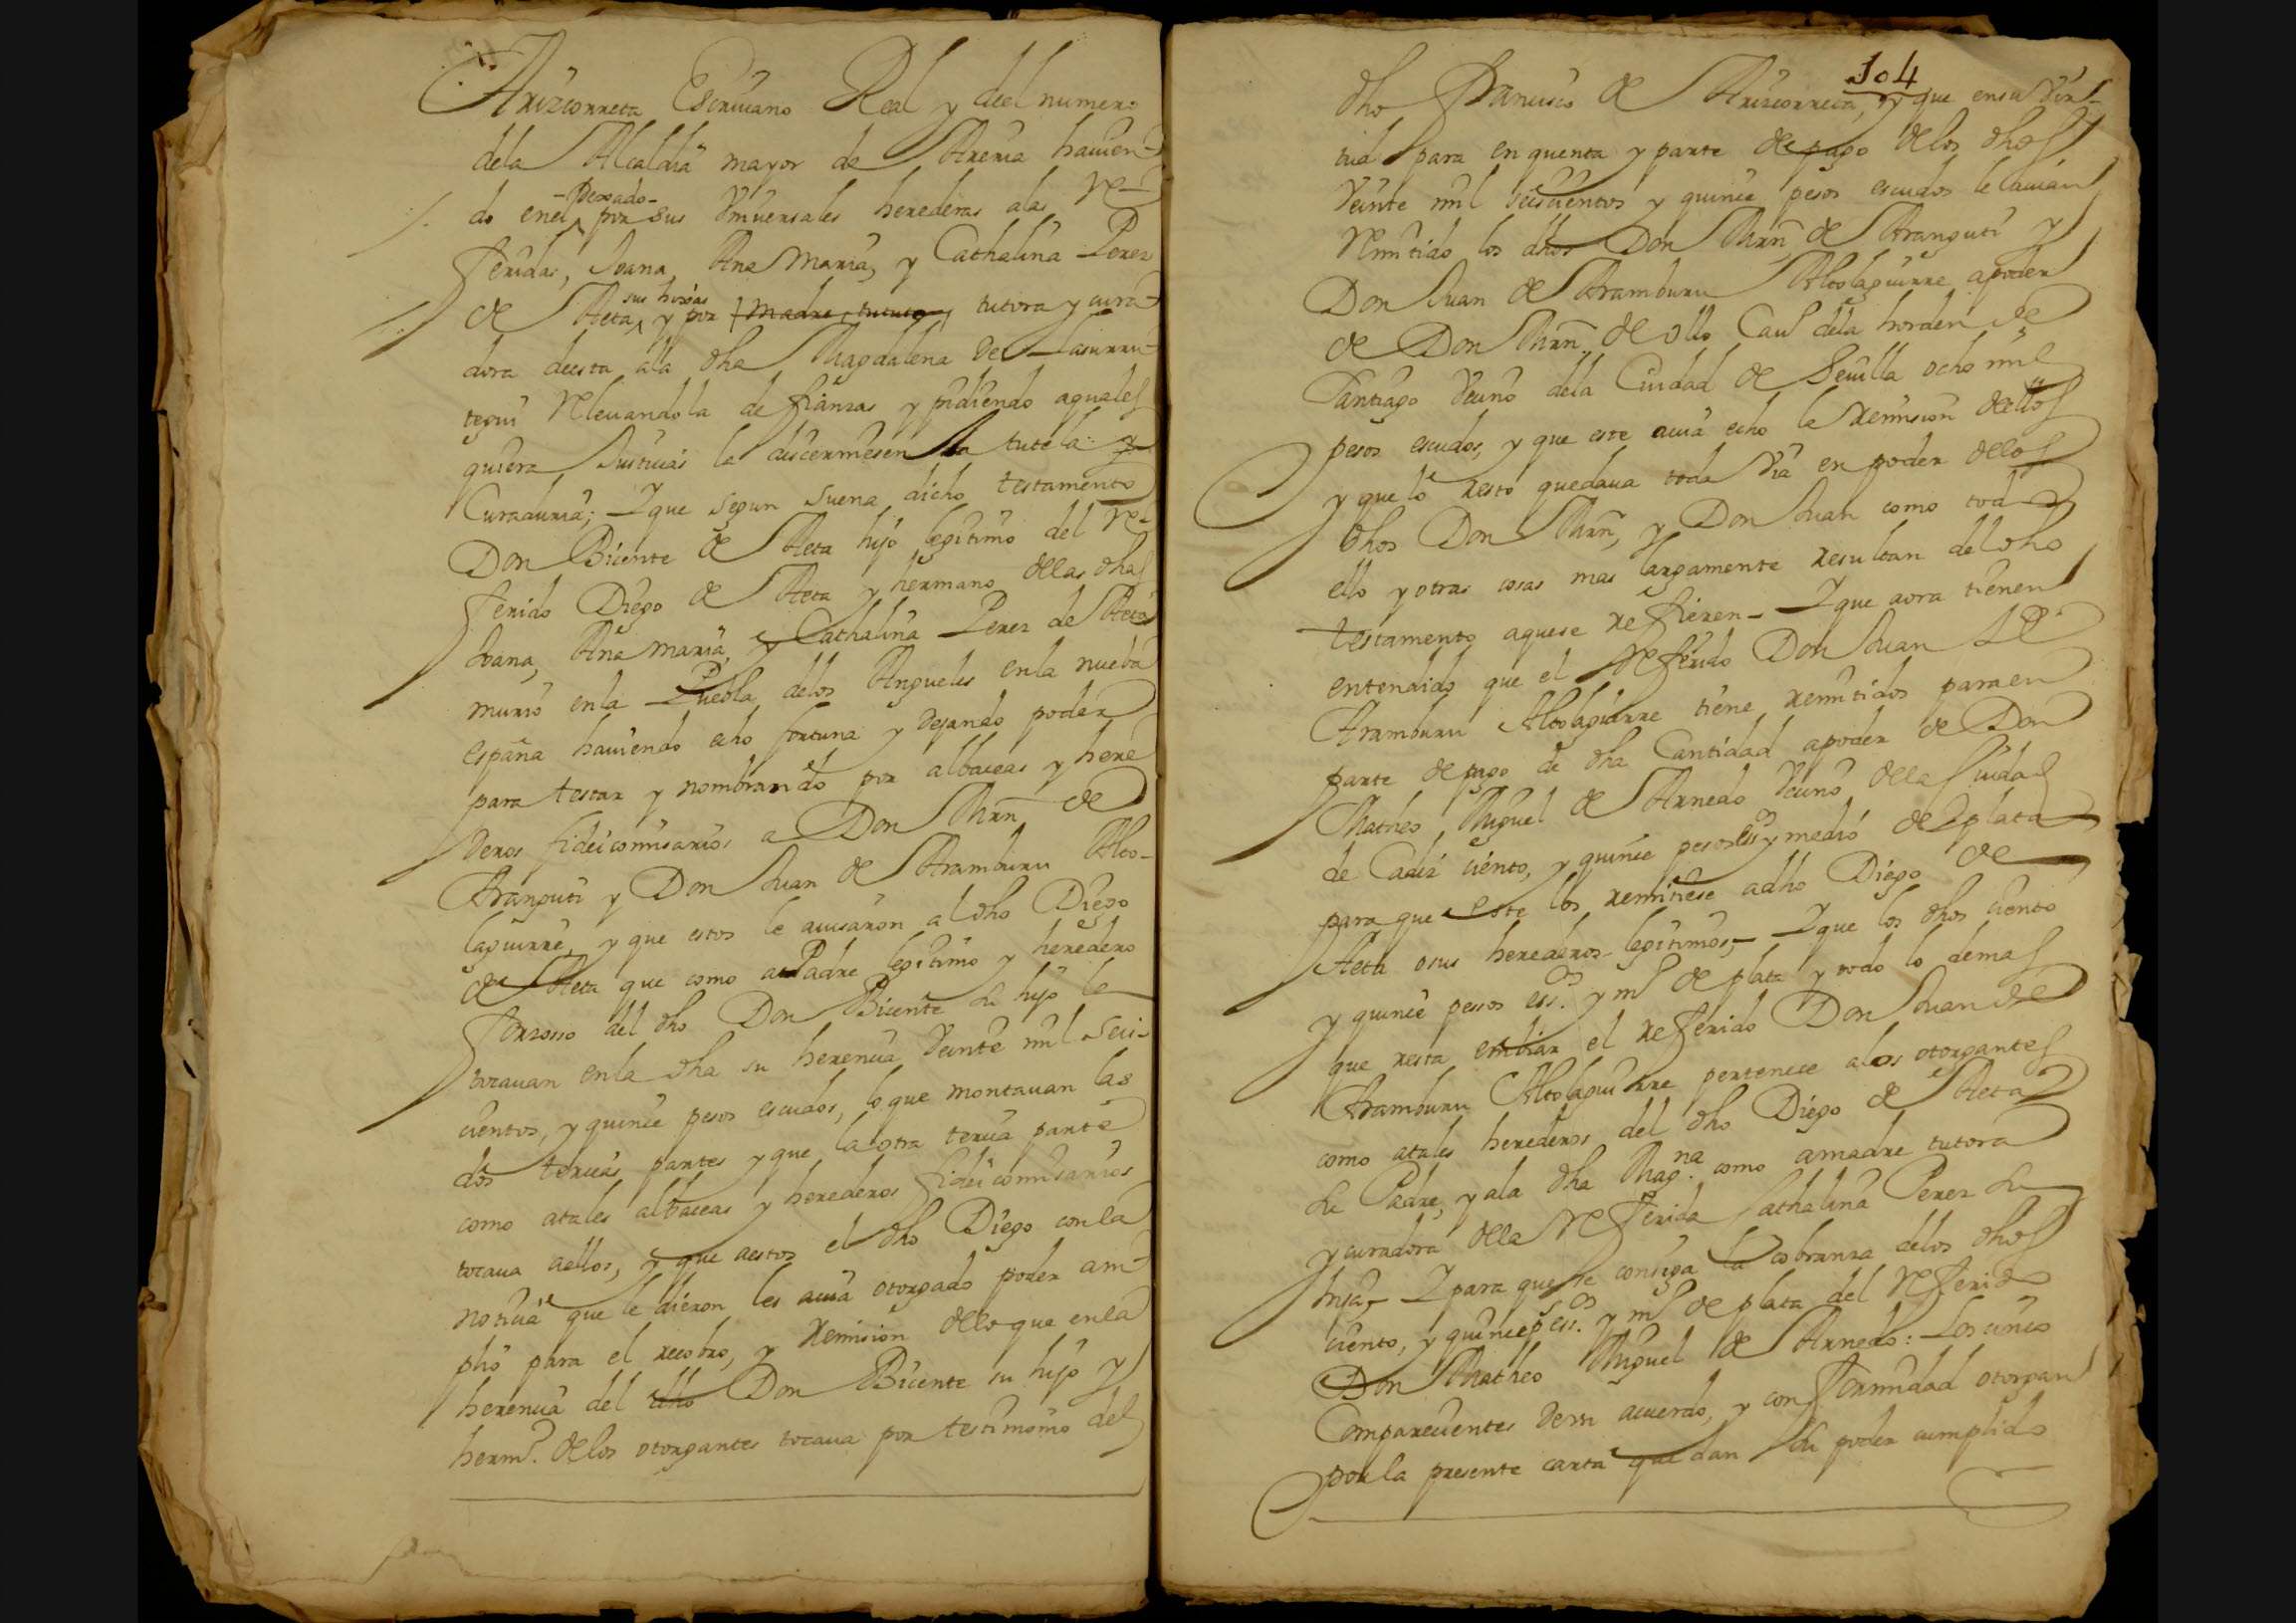 Arizcorreta Escriuano Real y del numero
dela Alcaldia mayor de Areria hauien-
-Dexado-
do enel por sus Vniuersales herederas alas re-
feridas, Joana, Ana Maria, y Cathalina Perez
sus hixas
de Aeta, y por madre, tutora, tutora y cura-
dora deesta ala dha Magdalena de Lasurru-
tegui releuandola de fianzas y pidiendo aquales
quiera Justicias la discerniesen la tutela y
Curaduria; Y que segun suena dicho testamento
Don Bicente de Aeta hijo legitimo del re-
ferido Diego de Aeta y hermano dellas dhas
Joana, Ana Maria, y Cathalina Perez de Aeta
murio enla Puebla delos Angueles enla nueba
españa hauiendo echo fortuna y dejando poder
para testar y nombrando por albaceas y here
deros fideicomisarios a Don Mrn de
Aranguti y Don Juan de Aramburu Alto-
laguirre, y que estos le auisaron al dho Diego
de Aeta que como a Padre legitimo y heredero
forzosso del dho Don Bicente su hijo le
tocauan enla dha su herencia Veinte mil seis-
cientos, y quince pesos escudos, lo que montauan las
dos tercias partes y que la otra tercia parte
como atales albaceas y herederos fideicomisarios
tocaua aellos, y que aestos el dho Diego conla
noticia que le dieron les auia otorgado poder am-
plio para el recobro, y remision dello que enla
herencia del dho Don Bicente su hijo y
hermo. delos otorgantes tocaua por testimonio del
104
dho Francisco de Arizcorreta, y que ensu Vir-
tud para en quenta y parte de pago delos dhos
Veinte mil seiscientos y quince pesos escudos le auian
remitido los dhos Don Mrn de Aranguti y
Don Juan de Aramburu Altolaguirre apoder
de Don Mrn. de Ollo Cauo dela horden de
Santiago Vecino dela Ciudad de Seuilla ocho mil
pesos escudos, y que este auia echo la remision dellos
y que lo resto quedaua toda via en poder dellos
dhos Don Mrn, y Don Juan como todo
ello y otras cosas mas largamente resultan del dho
testamento aquese refieren- Y que aora tienen
entendido que el referido Don Juan de
Aramburu Altolaguirre tiene remitidos para en
parte de pago de dha Cantidad apoder de Don
Matheo Miguel de Arnedo Vecino della Ciudad
de Cadiz ciento, y quince pesos ess y medio de plata
para que este los remitiese adho Diego de
Aeta osus herederos legitimos,- Y que los dhos ciento
y quince pessos ess.os y mo de plata y todo lo demas
que resta embiar el referido Don Juan de
Aramburu Altolaguirre pertenece alos otorgantes
como atales herederos del dho Diego de Aeta
su Padre, y ala dha Mag.na como amadre tutora
y curadora dela referida Cathalina Perez su
hija,- Y para que se consiga la cobranza delos dhos
ciento, y quince ps ess.os y mo de plata del referido
Don Matheo Miguel de Arnedo: Los cinco
Comparecientes desu acuerdo, y conformidad otorgan
por la presente carta que dan su poder cumplido